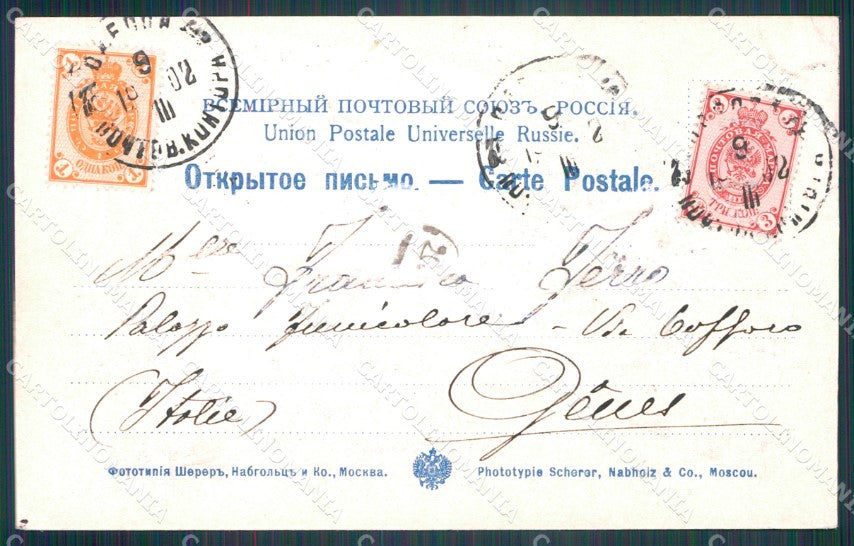 ВСЕМІРНЫЙ ПОЧТОВЫЙ СОЮЗЪ. РОССІЯ.
Union Postale Universelle Russie.
Открытое письмо. — Carte Postale.
M
Francesco Ferro
Palazzo Funicolare – Via Caffaro
(Italie) Gênes
Фототипія Шереръ, Набгольцъ и Ко., Москва. Phototypie Scherer, Nabholz & Co., Moscou.
1 1
ОДНА КОП.
ПОЧТОВАЯ
ТРИ КОП.
3 3
9
III
02
CARTOLINOMANIA